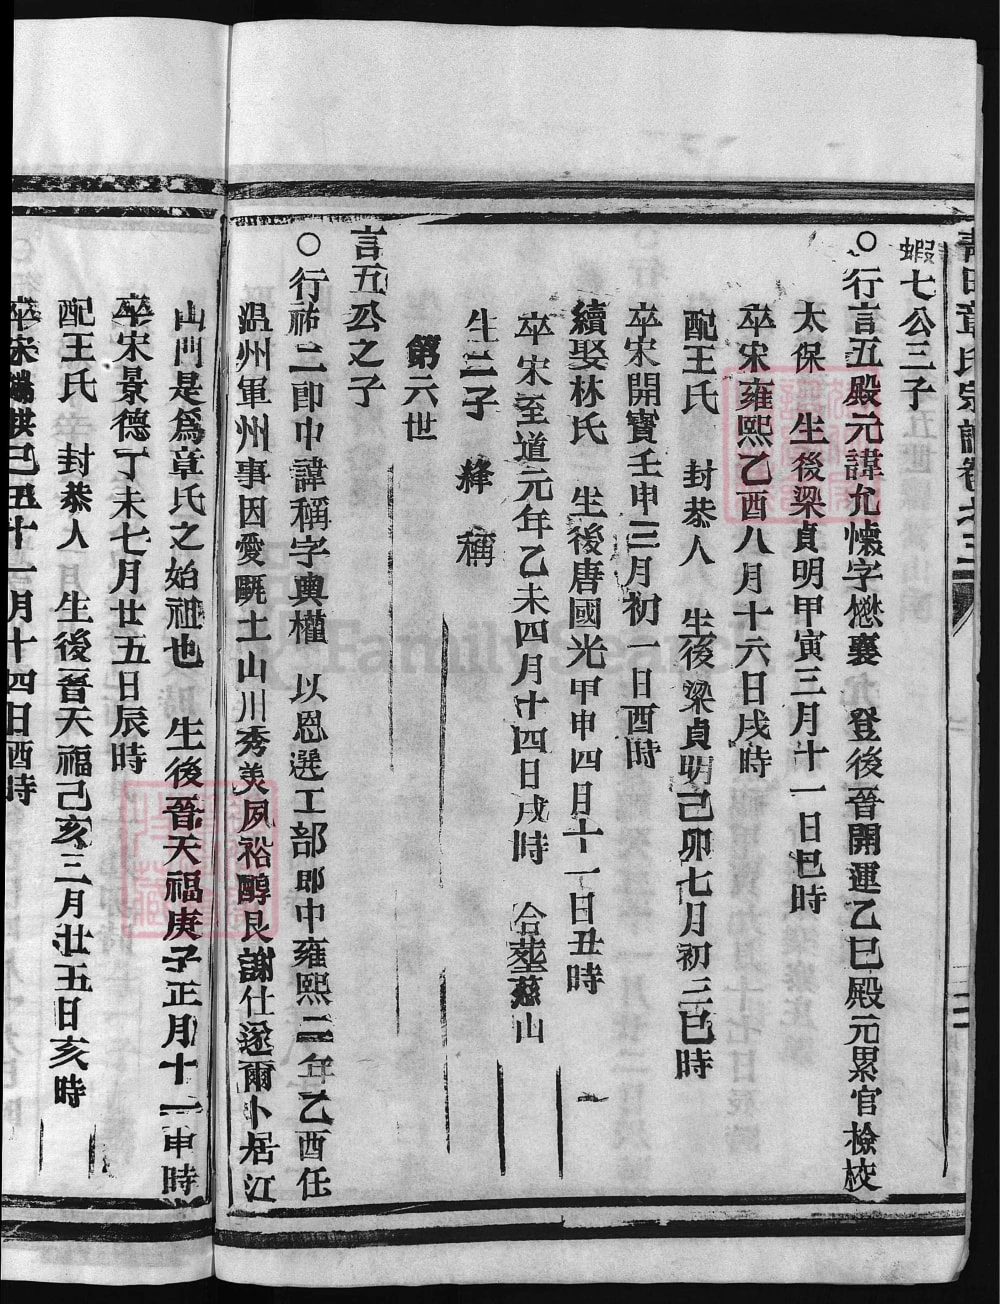 青田章氏宗譜卷之三
蝦七公三子
○行言五殿元諱允懷字懋襄　登後晉開運乙巳殿元累官檢校
太保　生後梁貞明甲寅三月十一日巳時
卒宋雍熙乙酉八月十六日戌時
配王氏　封恭人　生後梁貞明己卯七月初三巳時
卒宋開寶壬申三月初一日酉時
續娶林氏　生後唐國光甲申四月十一日丑時
卒宋至道元年乙未四月十四日戌時　合塟慈山
生二子　絳　稱
第六世
言五公之子
○行祐二郎中諱稱字輿權　以恩選工部郎中雍熙二年乙酉任
温州軍州事因愛甌土山川秀美夙裕醇艮謝仕遂爾卜居江
山門是爲章氏之始祖也　生後晉天福庚子正月十一申時
卒宋景德丁未七月廿五日辰時
配王氏　封恭人　生後晉天福己亥三月廿五日亥時
卒宋端拱己丑十一月十四日酉時